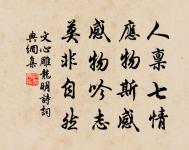 人稟七情
應物斯感
感物吟志
莫非自然
文心雕龍明詩詞
興綢集